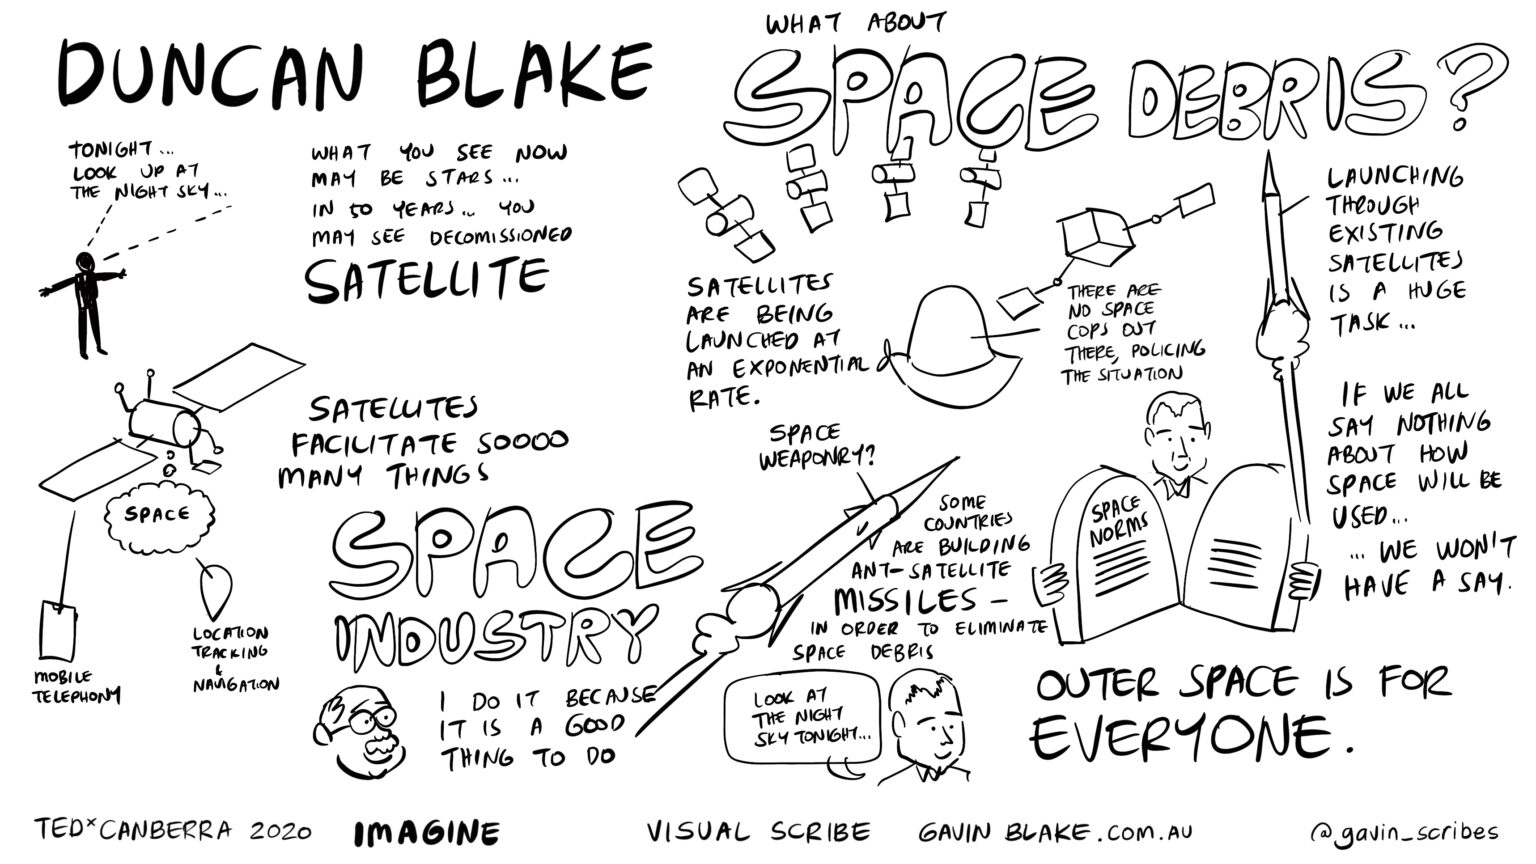 DUNCAN BLAKE
TONIGHT...
LOOK UP AT
THE NIGHT SKY...
WHAT YOU SEE NOW
MAY BE STARS...
IN 50 YEARS... YOU
MAY SEE DECOMISSIONED
SATELLITE
SATELLITES
FACILITATE SOOOO
MANY THINGS
SPACE
MOBILE
TELEPHONY
LOCATION
TRACKING
&
NAVIGATION
SPACE
INDUSTRY
I DO IT BECAUSE
IT IS A GOOD
THING TO DO
WHAT ABOUT
SPACE DEBRIS?
SATELLITES
ARE BEING
LAUNCHED AT
AN EXPONENTIAL
RATE.
THERE ARE
NO SPACE
COPS OUT
THERE, POLICING
THE SITUATION
LAUNCHING
THROUGH
EXISTING
SATELLITES
IS A HUGE
TASK...
SPACE
WEAPONRY?
SOME
COUNTRIES
ARE BUILDING
ANT-SATELLITE
MISSILES -
IN ORDER TO ELIMINATE
SPACE DEBRIS
LOOK AT
THE NIGHT
SKY TONIGHT...
SPACE
NORMS
IF WE ALL
SAY NOTHING
ABOUT HOW
SPACE WILL BE
USED...
... WE WON'T
HAVE A SAY.
OUTER SPACE IS FOR
EVERYONE.
TEDxCANBERRA 2020 IMAGINE VISUAL SCRIBE GAVIN BLAKE.COM.AU @gavin_scribes